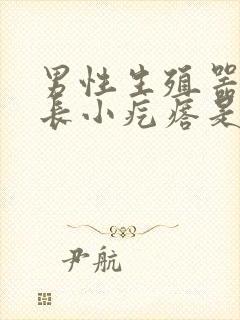 男性生殖器
长小疙瘩是
尹航